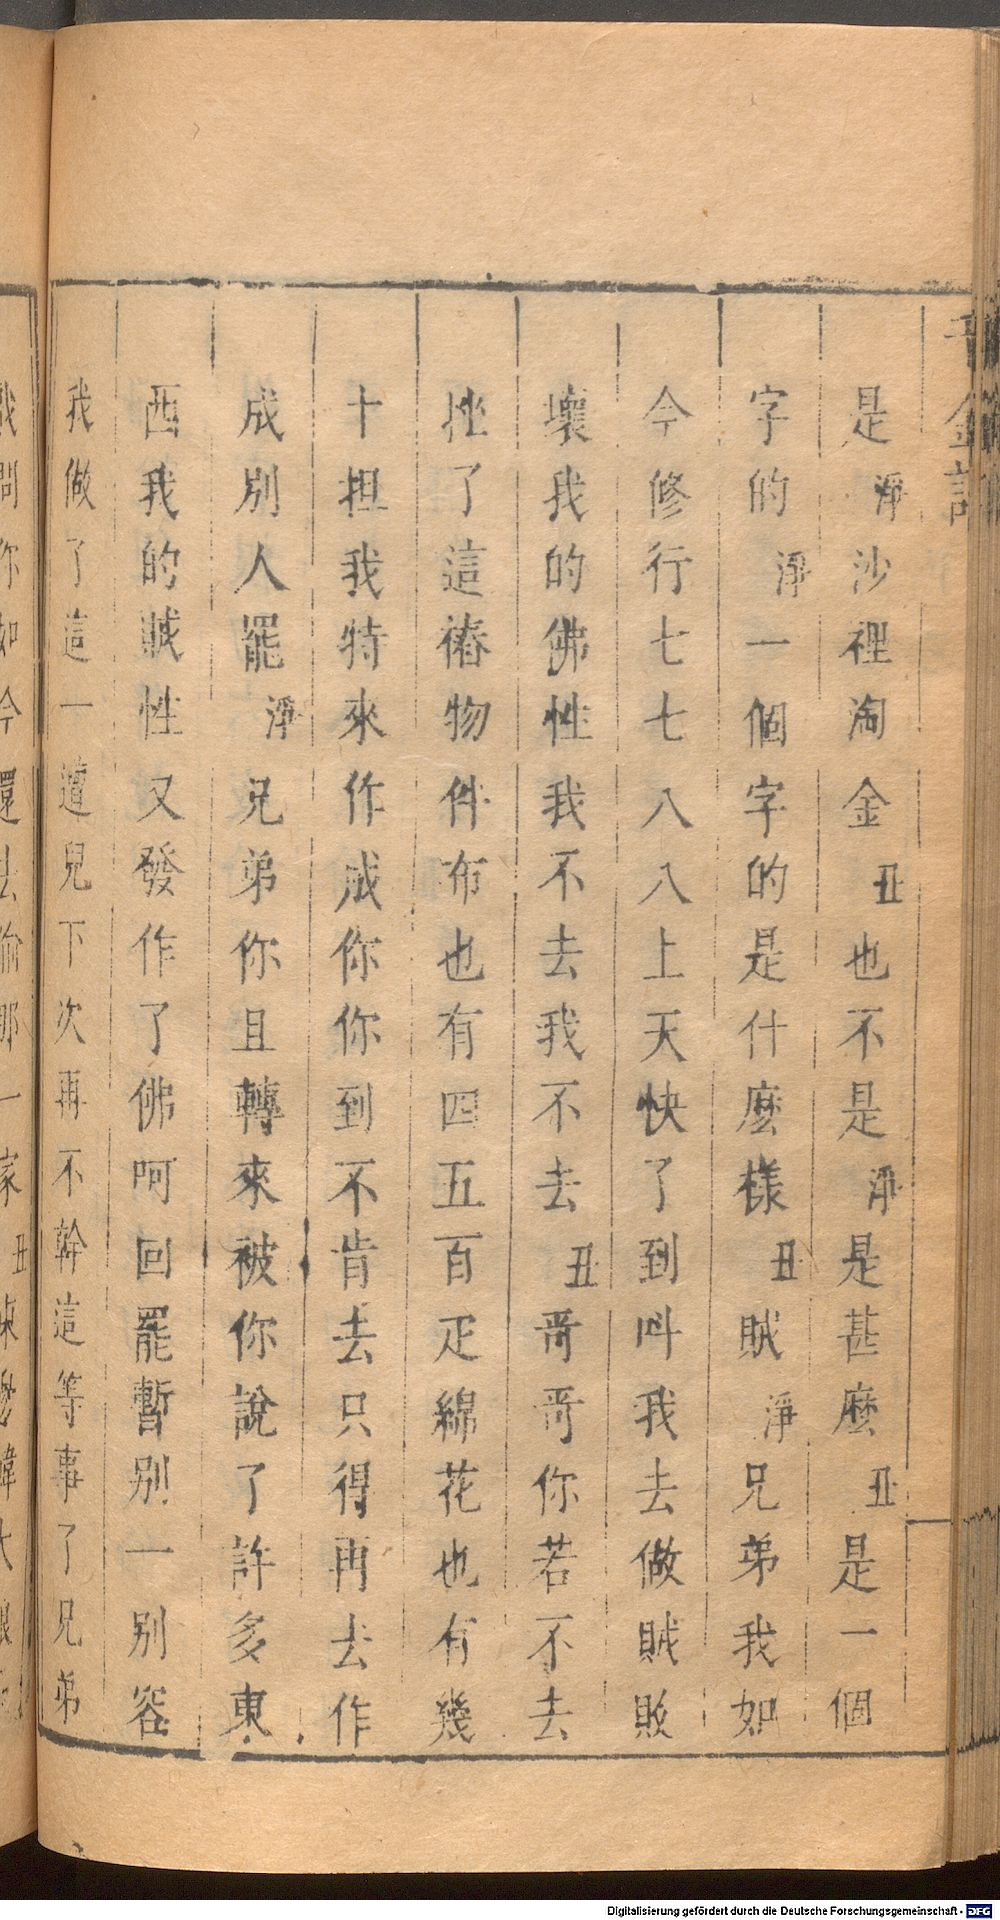 千金記
是淨沙裡淘金丑也不是淨是甚麽丑是一個
字的淨一個字的是什麽樣丑賊淨兄弟我如
今修行七七八八上天快了到叫我去做賊敗
壞我的佛性我不去我不去丑哥哥你若不去
挫了這樁物件布也有四五百疋綿花也有幾
十担我特來作成你你到不肯去只得再去作
成別人罷淨兄弟你且轉來被你說了許多東
西我的賊性又發作了佛呵回罷暫别一别容
我做了這一遭兒下次再不幹這等事了兄弟
我問你如今還去偷那一家丑東
Digitalisierung gefördert durch die Deutsche Forschungsgemeinschaft - DFG